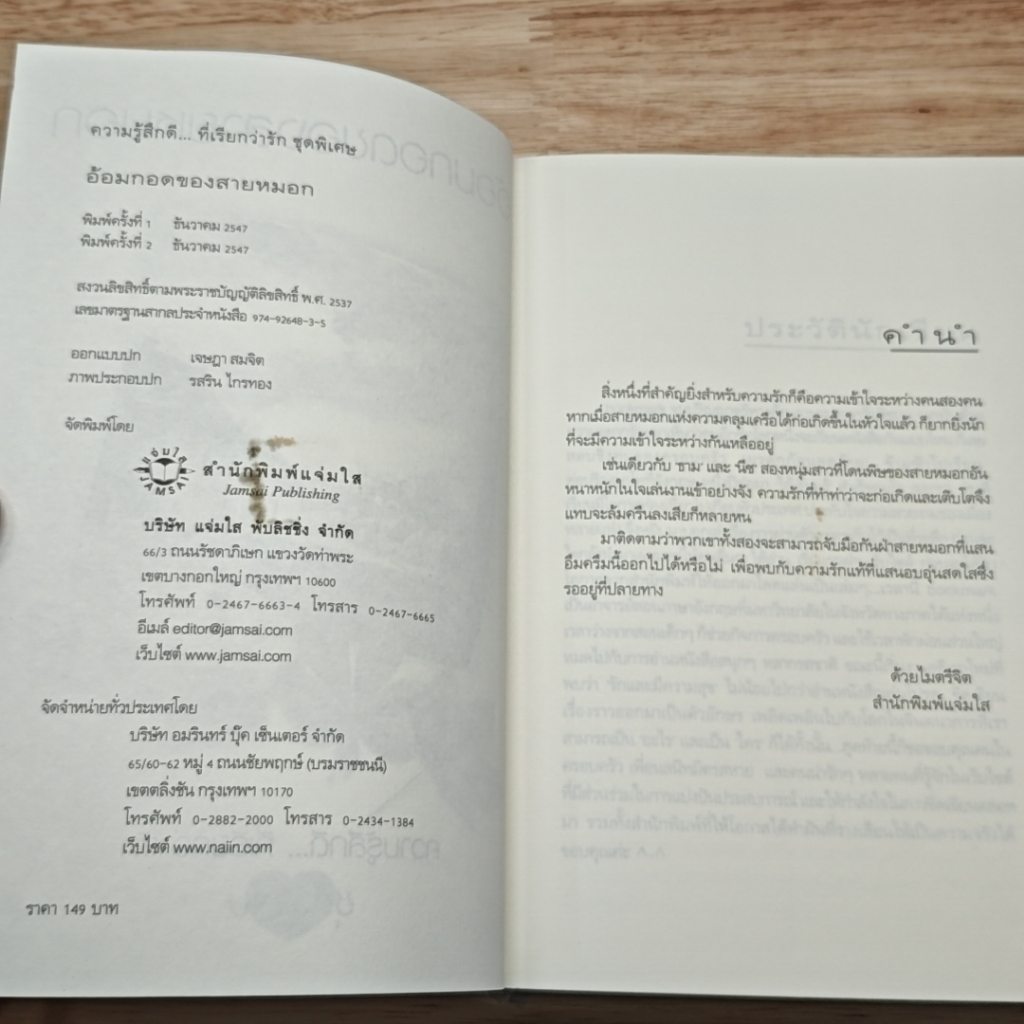 ความรู้สึกดี... ที่เรียกว่ารัก ชุดพิเศษ
อ้อมกอดของสายหมอก
พิมพ์ครั้งที่ 1 ธันวาคม 2547
พิมพ์ครั้งที่ 2 ธันวาคม 2547
สงวนลิขสิทธิ์ตามพระราชบัญญัติลิขสิทธิ์ พ.ศ. 2537
เลขมาตรฐานสากลประจำหนังสือ 974-92648-3-5
ออกแบบปก เจษฎา สมจิต
ภาพประกอบปก รสริน ไกรทอง
จัดพิมพ์โดย
แจ่มใส
JAMSAI
สำนักพิมพ์แจ่มใส
Jamsai Publishing
บริษัท แจ่มใส พับลิชชิ่ง จำกัด
66/3 ถนนรัชดาภิเษก แขวงวัดท่าพระ
เขตบางกอกใหญ่ กรุงเทพฯ 10600
โทรศัพท์ 0-2467-6663-4 โทรสาร 0-2467-6665
อีเมล์ editor@jamsai.com
เว็บไซต์ www.jamsai.com
จัดจำหน่ายทั่วประเทศโดย
บริษัท อมรินทร์ บุ๊ค เซ็นเตอร์ จำกัด
65/60-62 หมู่ 4 ถนนชัยพฤกษ์ (บรมราชชนนี)
เขตตลิ่งชัน กรุงเทพฯ 10170
โทรศัพท์ 0-2882-2000 โทรสาร 0-2434-1384
เว็บไซต์ www.naiin.com
ราคา 149 บาท
คำนำ
สิ่งหนึ่งที่สำคัญยิ่งสำหรับความรักก็คือความเข้าใจระหว่างคนสองคน
หากเมื่อสายหมอกแห่งความคลุมเครือได้ก่อเกิดขึ้นในหัวใจแล้ว ก็ยากยิ่งนัก
ที่จะมีความเข้าใจระหว่างกันเหลืออยู่
เช่นเดียวกับ 'ธาม' และ 'นีซ' สองหนุ่มสาวที่โดนพิษของสายหมอกอัน
หนาหนักในใจเล่นงานเข้าอย่างจัง ความรักที่ทำท่าว่าจะก่อเกิดและเติบโตจึง
แทบจะล้มครืนลงเสียก็หลายหน
มาติดตามว่าพวกเขาทั้งสองจะสามารถจับมือกันฝ่าสายหมอกที่แสน
อึมครึมนี้ออกไปได้หรือไม่ เพื่อพบกับความรักแท้ที่แสนอบอุ่นสดใสซึ่ง
รออยู่ที่ปลายทาง
ด้วยไมตรีจิต
สำนักพิมพ์แจ่มใส